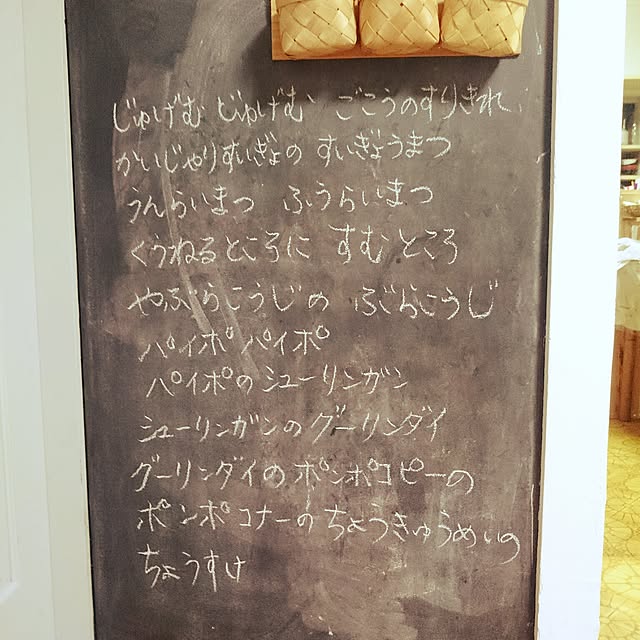 じゅげむ じゅげむ ごこうのすりきれ
かいじゃりすいぎょの すいぎょうまつ
うんらいまつ ふうらいまつ
くうねるところに すむところ
やぶらこうじの ぶらこうじ
パイポ パイポ
パイポのシューリンガン
シューリンガンのグーリンダイ
グーリンダイのポンポコピーの
ポンポコナーのちょうきゅうめいの
ちょうすけ